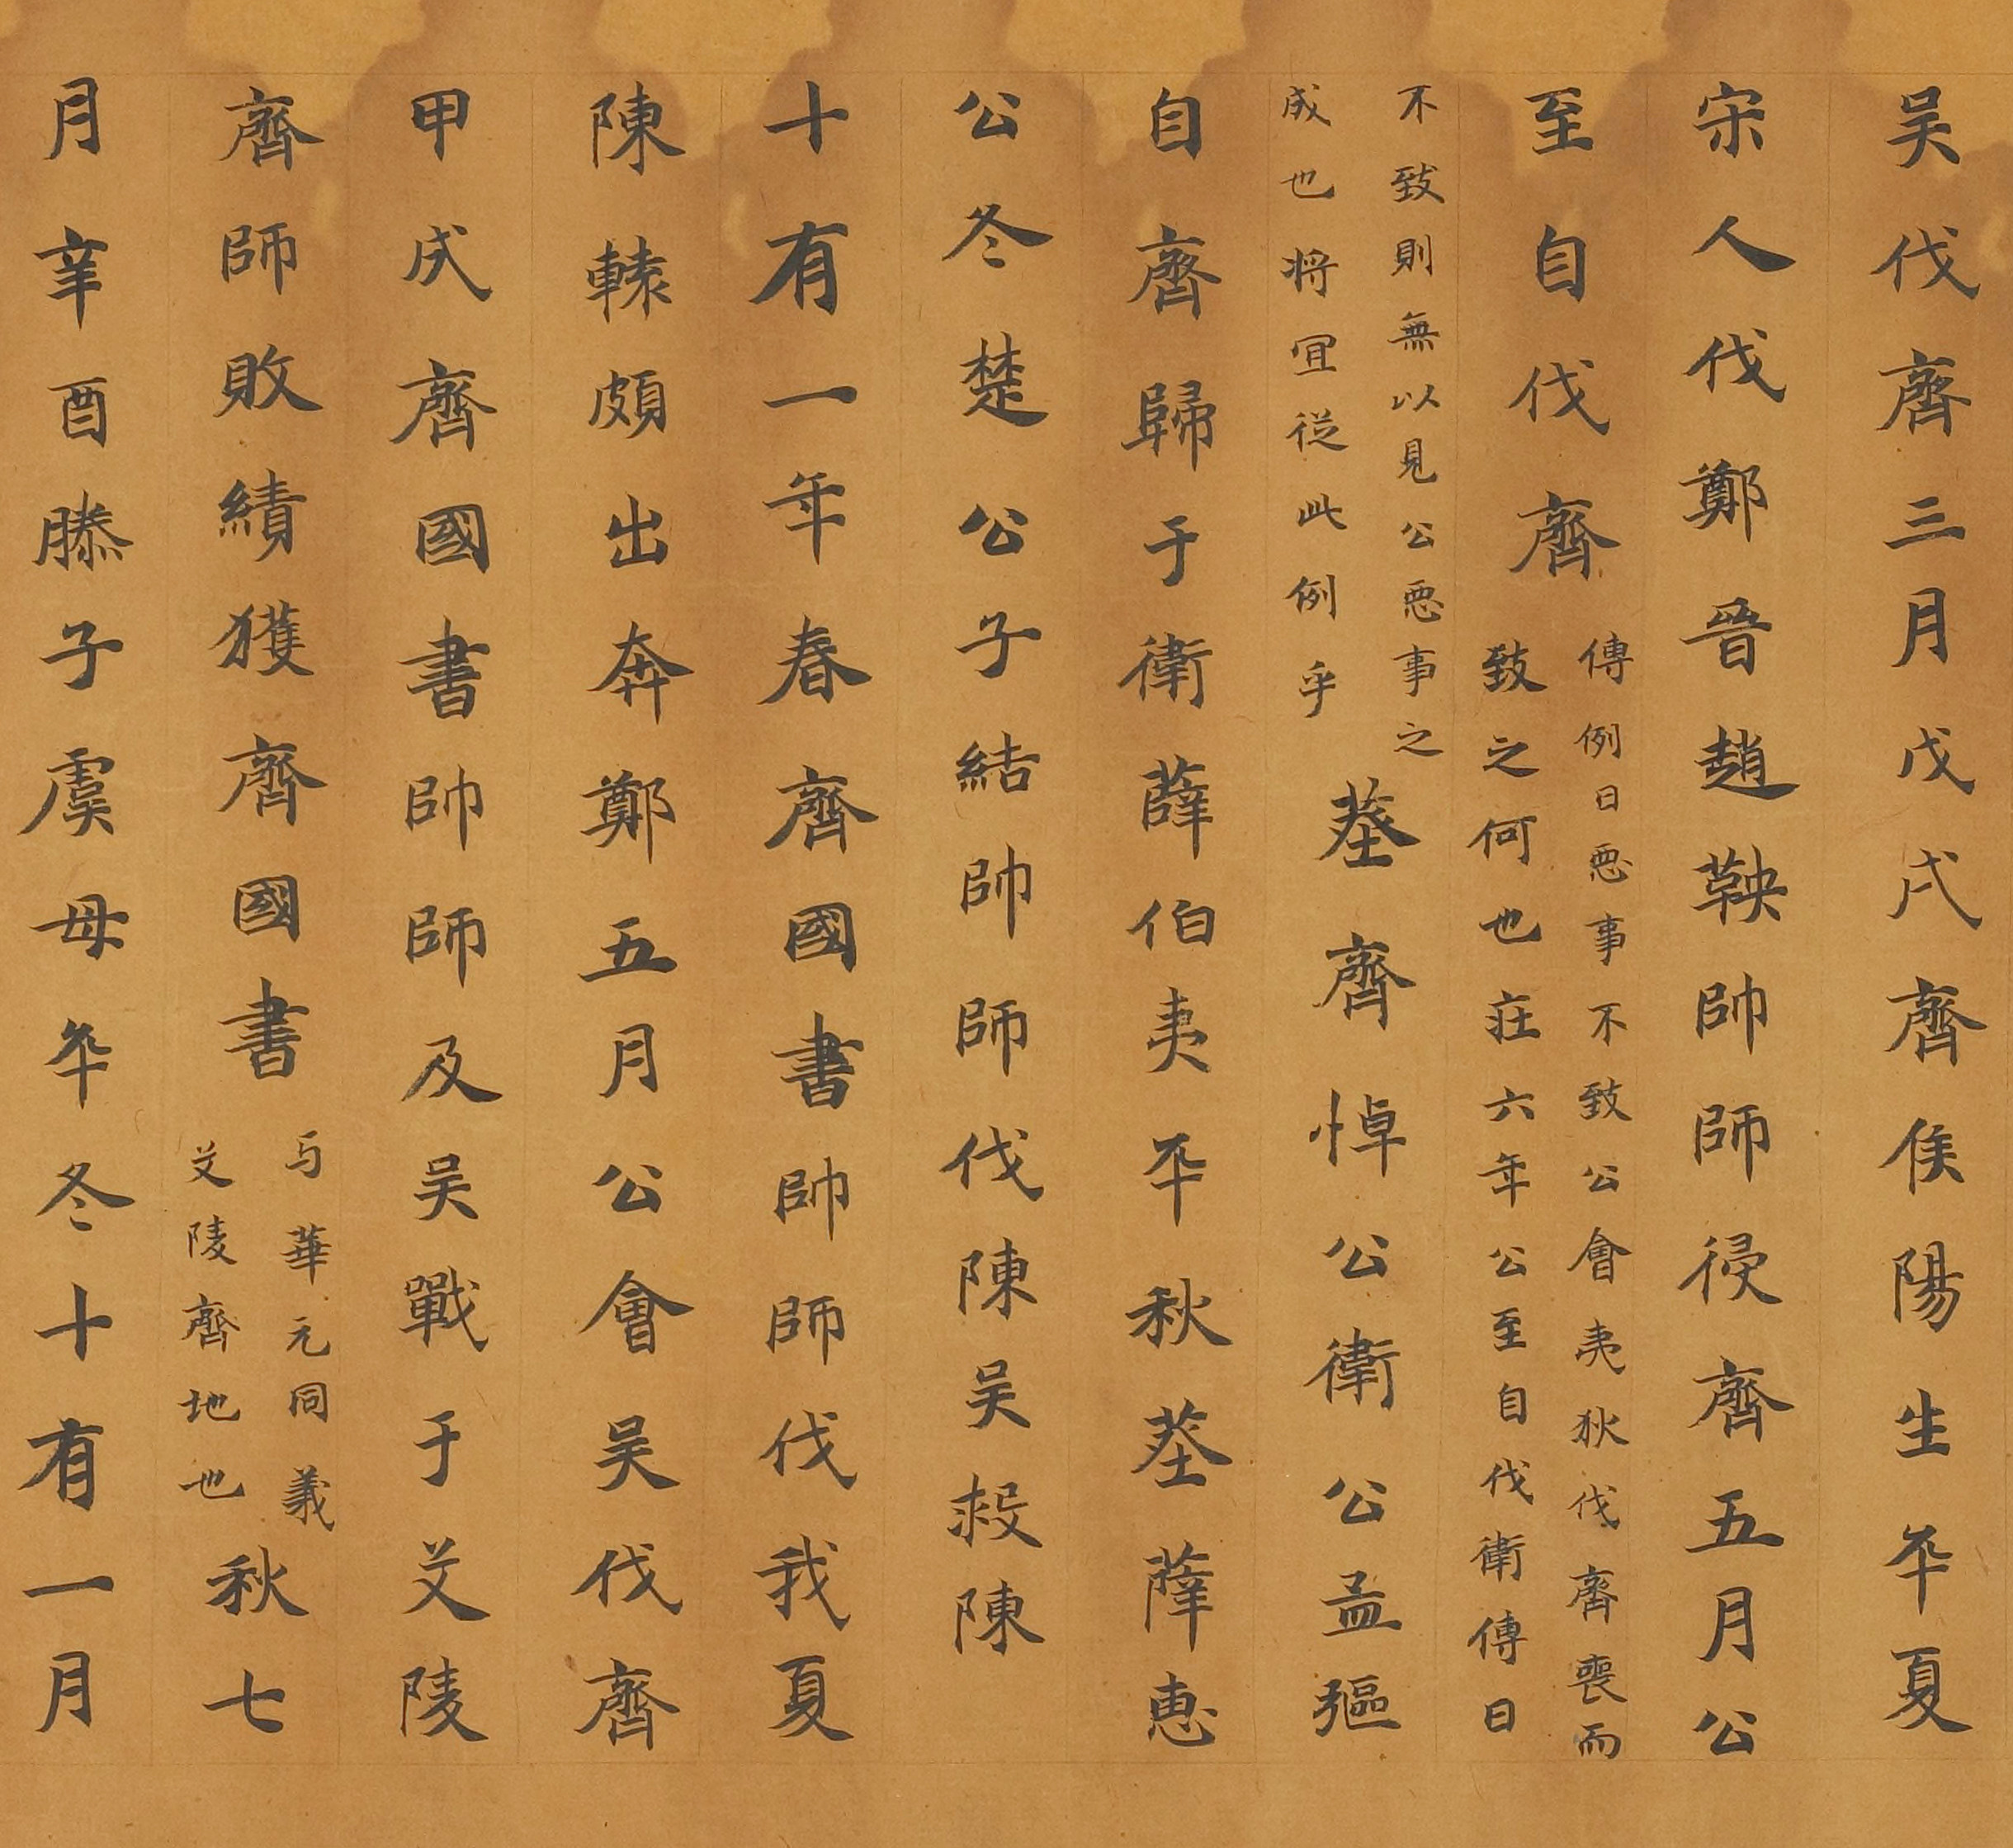 吴伐齊三月戊戌齊侯陽生卒夏
宋人伐鄭晉趙鞅帥師侵齊五月公
至自伐齊
傳例曰惡事不致公會夷狄伐齊喪而
致之何也莊六年公至自伐衛傳曰
不致則無以見公惡事之
成也将宜從此例乎
葬齊悼公衛公孟彄
自齊歸于衛薛伯夷卒秋葬薛惠
公冬楚公子結帥師伐陳吴救陳
十有一年春齊國書帥師伐我夏
陳轅頗出奔鄭五月公會吴伐齊
甲戌齊國書帥師及吴戰于艾陵
齊師敗績獲齊國書
与華元同義
艾陵齊地也
秋七
月辛酉滕子虞母卒冬十有一月